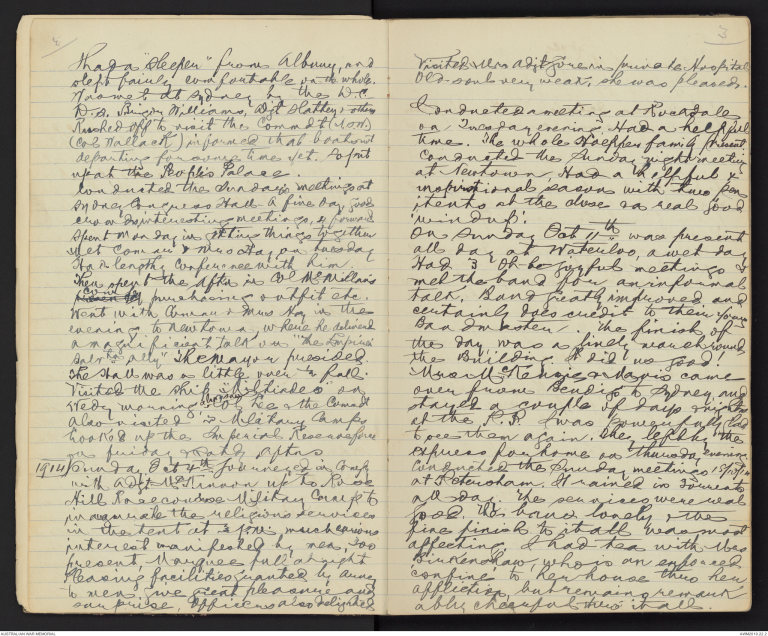 4
I had a "sleeper" from Albury, and
slept fairly comfortable on the whole.
Was met at Sydney by the D.C.
Brigdr Williams, Adjt Slattery & others
Rushed off to visit the Commdt (N.S.W.)
(Col Wallack) informed that back not
departing for some time yet. So put
up at the People's Palace.
Conducted the Sunday's meetings at
Sydney Congress Hall. A fine day, good
crowds, interesting meetings, & forward
Spent Monday in getting things together
Met Commr & Mrs Hay on Tuesday
Had a lengthy Conference with him
Then spent the Aftn in Col McMillan's
purchasing outfit etc.
Went with Commr & Mrs Hay in the
evening to Newtown, where he delivered
a magnificent talk on "The Imperial
Salv ally" The Mayor presided.
The Hall was a little over ½ full.
Visited the ship "Miltiades" on
Wedy morning. Col Lee & the Commdt
also visited 2 Military Camps
hooked up the Imperial Reserve force
on Friday Aftn
1914) Sunday Oct 4th journeyed in Comp
with Adjt McKinnon up to Rose
Hill Racecourse Military Camp to
inaugurate the religious services
in the tent at 3 p.m. much
interest manifested by men, 200
present, Marquee full at night
Pleasing facilities granted by Army
to men. We great pleasure and
surprise, Officers also delighted
5
Visited Mrs Adjt Gore in private Hospital
Old soul very weak, she was pleased.
Conducted a meeting at Rockdale
on Tuesday evening. Had a helpful
time. The whole Hoepper family present
Conducted the Sunday night meeting
at Newtown, Had a helpful &
inspirational season with two pen
itents at the close & a real good
'wind up'.
On Sunday Oct 11th was present
all day at Waterloo, a wet day
Had 3 joyful meetings &
met the band for an informal
talk. Band greatly improved and
certainly does credit to their young
Bandmaster. The finish of
the day was a lively march round
the Building. It did us good!
Mrs McKenzie & Mavis came
over from Bendigo to Sydney and
stayed a couple of days & nights
at the P.P. I was powerfully glad
to see them again. They left by the
express for home on Thursday evening
Conducted the Sunday meetings 18/10/14
at Petersham. It rained in torrents
all day. The services were real
good. The band lovely & the
fine finish to it all was most
affecting. I had tea with Mrs
Birkenshaw, who is an enforced
confine to her house thro her
affliction, but remains remark
ably cheerful thro' it all.
AUSTRALIAN WAR MEMORIAL
AWM2018.22.2